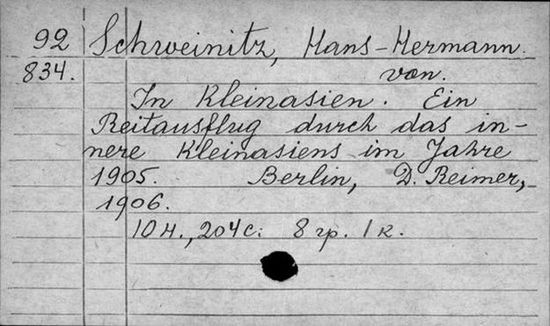 92 Schweinitz, Hans-Hermann.
834. von.
In Kleinasien. Ein
Reitausflug durch das in-
nere Kleinasiens im Jahre
1905. Berlin, D. Reimer,
1906.
10 H., 204 c. 8 гр. 1 к.